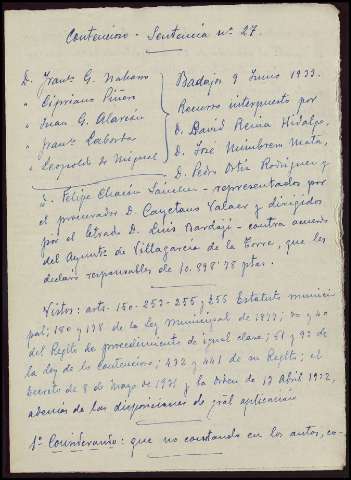 Contencioso - Sentencia nº 27.
D. Franco G. Naharro
" Cipriano Piñero
" Juan G. Alarcón
" Franco Cabortas
" Leopoldo de Miguel
Badajoz 9 Junio 1933.
Recurso interpuesto por
D. David Reina Hidalgo,
D. José Membrem Mata,
D. Pedro Ortiz Rodriguez y
D. Felipe Chacón Sánchez - representados por
el procurador D. Cayetano Valaer y dirigidos
por el letrado D. Luis Bardaji - contra acuerdo
del Ayuntº de Villagarcia de la Torre, que les
declaró responsables de 10.898'78 ptas.
Vistos: arts. 150-253-255 y 256 Estatuto munici-
pal; 180 y 178 de la Ley Municipal de 1877; 30 y 40
del Reglto de procedimiento de igual clase; 51 y 92 de
la ley de lo Contencioso; 432 y 441 de su Reglto; el
decreto de 8 de Mayo de 1931 y la Orden de 13 Abril 1932,
además de las disposiciones de gral aplicación
1º Considerando: que no constando en los autos, co-